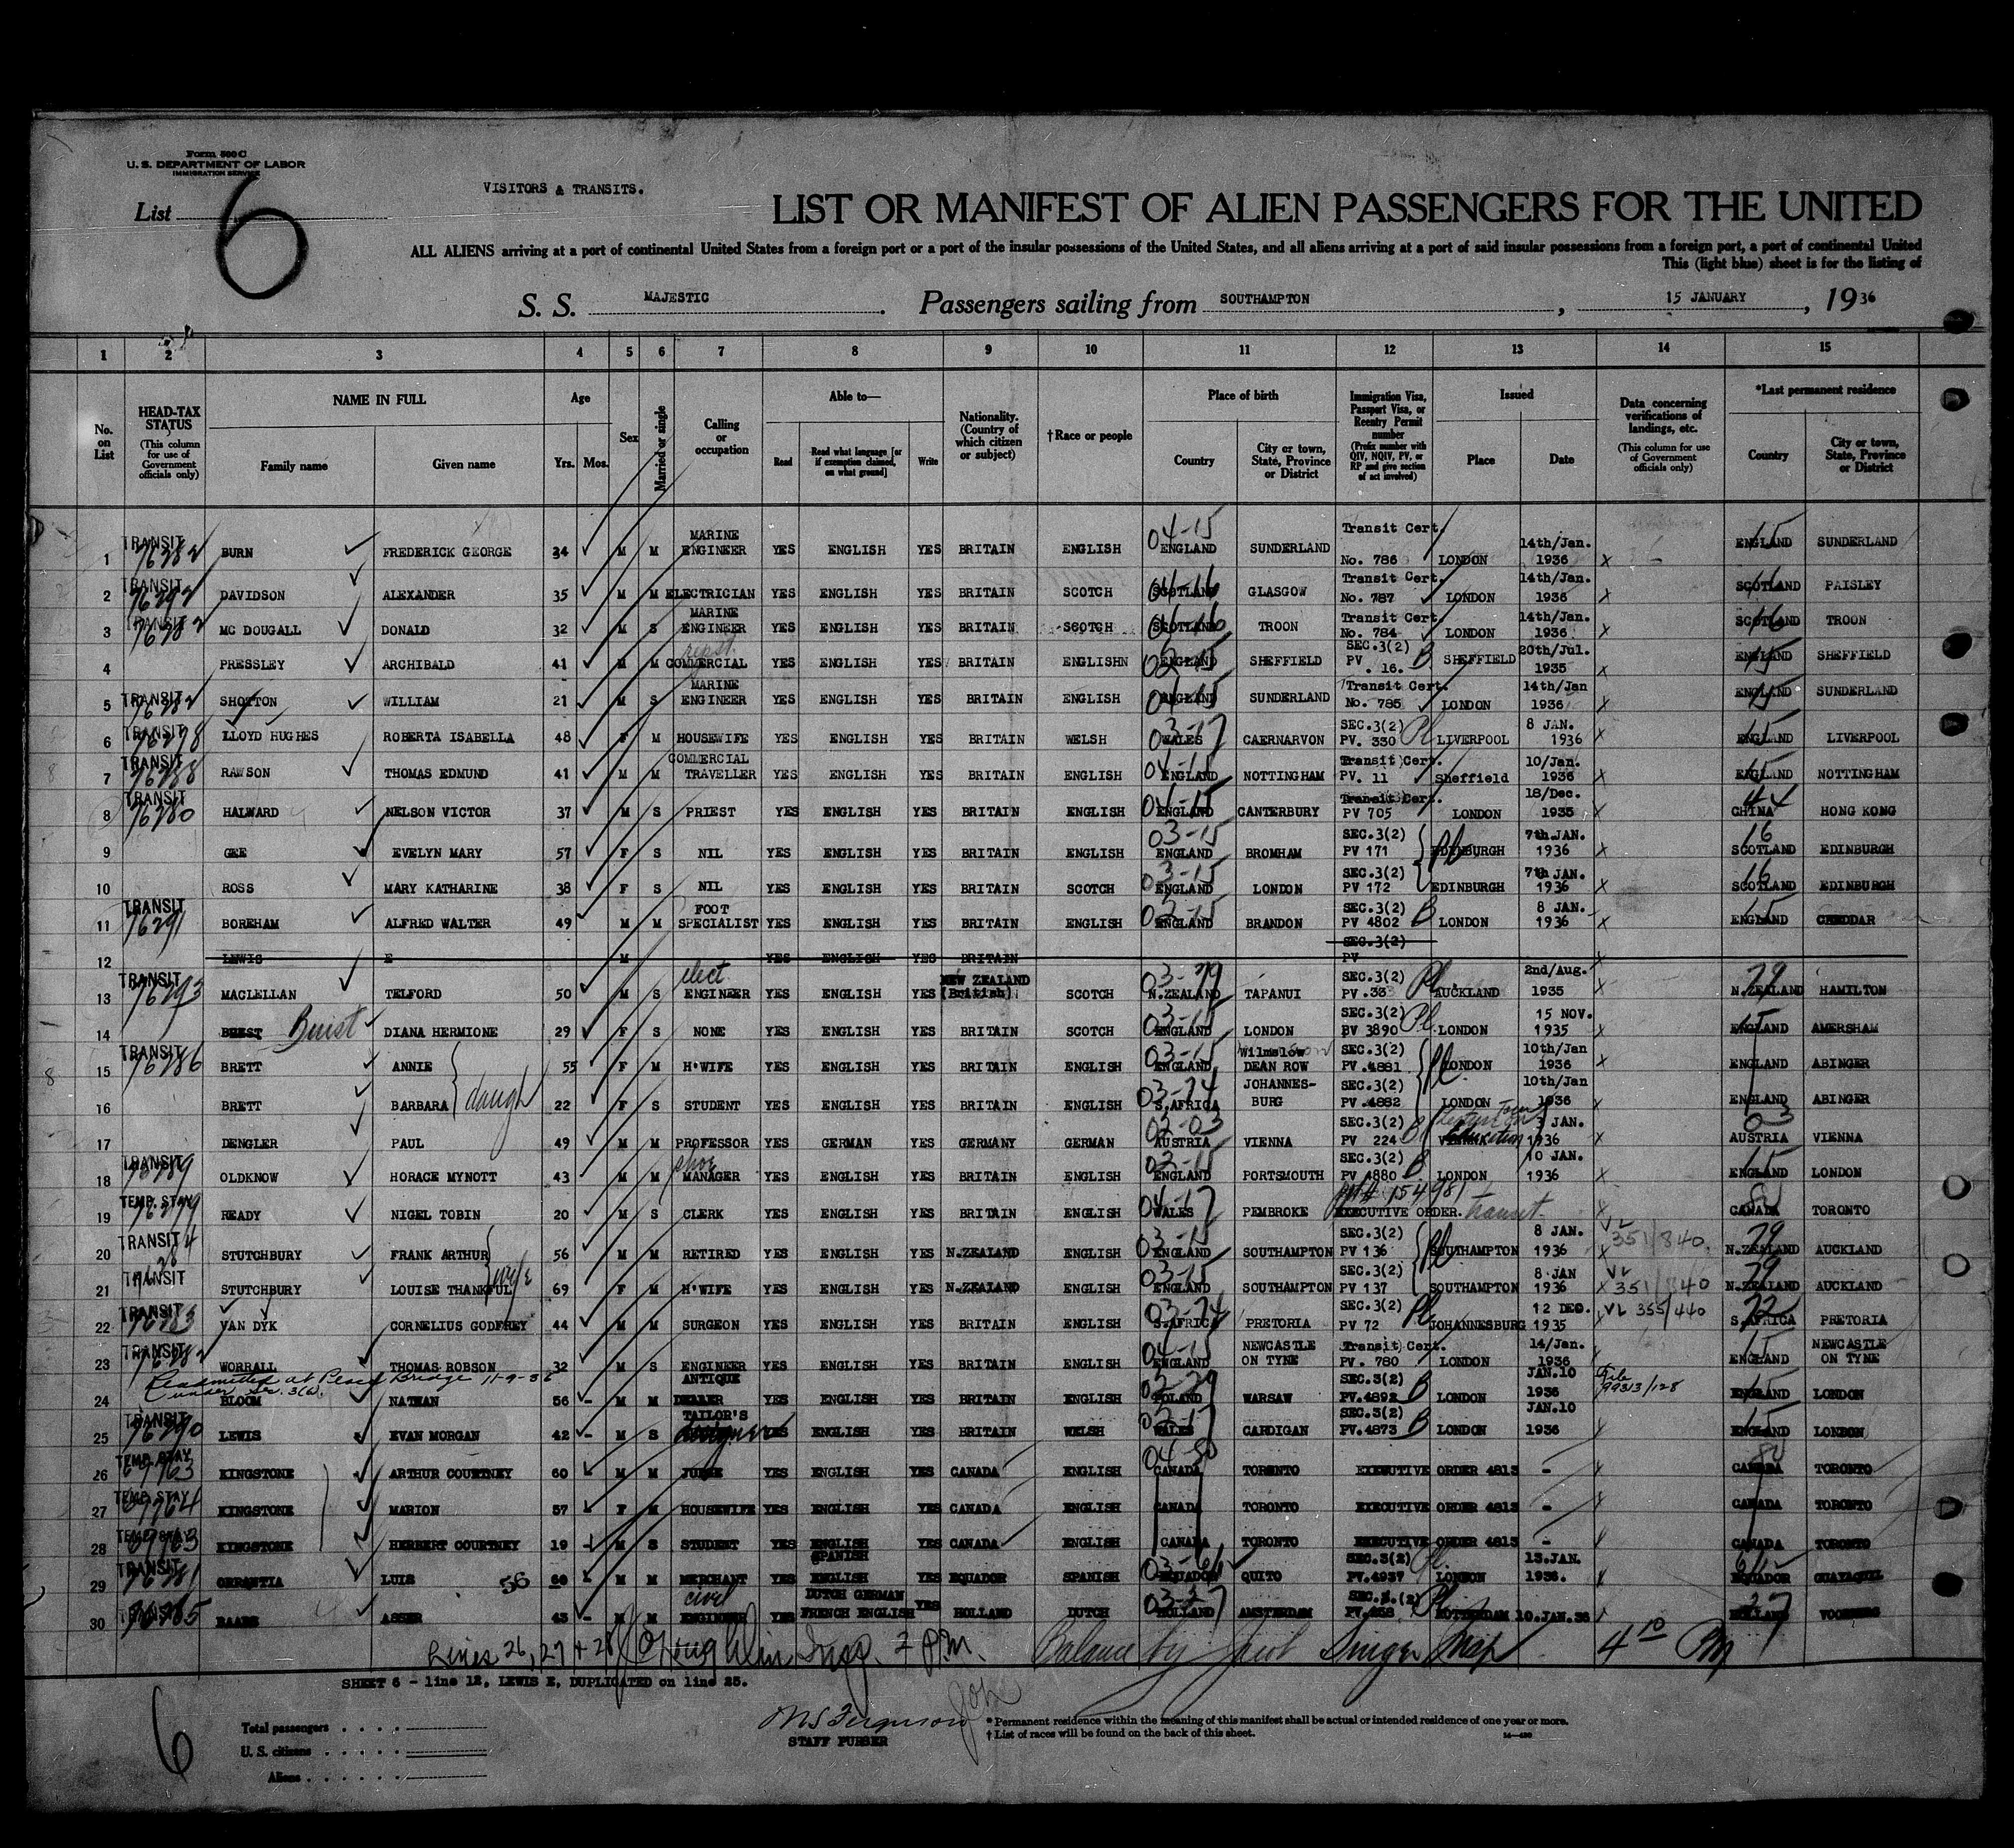 Form 500 C
U. S. DEPARTMENT OF LABOR
IMMIGRATION SERVICE
VISITORS & TRANSITS.
List 6
LIST OR MANIFEST OF ALIEN PASSENGERS FOR THE UNITED
ALL ALIENS arriving at a port of continental United States from a foreign port or a port of the insular possessions of the United States, and all aliens arriving at a port of said insular possessions from a foreign port, a port of continental United
This (light blue) sheet is for the listing of
S. S. MAJESTIC. Passengers sailing from SOUTHAMPTON, 15 JANUARY, 1936
1 2 3 4 5 6 7 8 9 10 11 12 13 14 15
No. on List
HEAD-TAX STATUS (This column for use of Government officials only)
NAME IN FULL
Family name Given name
Age
Yrs. Mos.
Sex
Married or single
Calling or occupation
Able to—
Read Read what language [or if exemption claimed, on what ground] Write
Nationality. (Country of which citizen or subject)
†Race or people
Place of birth
Country City or town, State, Province or District
Immigration Visa, Passport Visa, or Reentry Permit number (Prefix number with QIV, NQIV, PV, or RP and give section of act involved)
Issued
Place Date
Data concerning verifications of landings, etc. (This column for use of Government officials only)
*Last permanent residence
Country City or town, State, Province or District
1 TRANSIT 76282 BURN FREDERICK GEORGE 34 M M MARINE ENGINEER YES ENGLISH YES BRITAIN ENGLISH 04-15 ENGLAND SUNDERLAND Transit Cert. No. 786 LONDON 14th/Jan. 1936 x 15 ENGLAND SUNDERLAND
2 TRANSIT 76292 DAVIDSON ALEXANDER 35 M M ELECTRICIAN YES ENGLISH YES BRITAIN SCOTCH 04-16 SCOTLAND GLASGOW Transit Cert. No. 787 LONDON 14th/Jan. 1936 x 16 SCOTLAND PAISLEY
3 TRANSIT 76282 MC DOUGALL DONALD 32 M S MARINE ENGINEER YES ENGLISH YES BRITAIN SCOTCH 04-16 SCOTLAND TROON Transit Cert. No. 784 LONDON 14th/Jan. 1936 x 16 SCOTLAND TROON
4 PRESSLEY ARCHIBALD 41 M M COMMERCIAL YES ENGLISH YES BRITAIN ENGLISHN 02-15 ENGLAND SHEFFIELD SEC.3(2) PV . 16. B SHEFFIELD 20th/Jul. 1935 x 15 ENGLAND SHEFFIELD
5 TRANSIT 76282 SHOTTON WILLIAM 21 M S MARINE ENGINEER YES ENGLISH YES BRITAIN ENGLISH 04-15 ENGLAND SUNDERLAND Transit Cert. No. 785 LONDON 14th/Jan 1936 x 15 ENGLAND SUNDERLAND
6 TRANSIT 76278 LLOYD HUGHES ROBERTA ISABELLA 48 F M HOUSEWIFE YES ENGLISH YES BRITAIN WELSH 03-17 WALES CAERNARVON SEC.3(2) PV. 330 Pl LIVERPOOL 8 JAN. 1936 x 15 ENGLAND LIVERPOOL
7 TRANSIT 76288 RAWSON THOMAS EDMUND 41 M M COMMERCIAL TRAVELLER YES ENGLISH YES BRITAIN ENGLISH 04-15 ENGLAND NOTTINGHAM Transit Cert. PV. 11 Sheffield 10/Jan. 1936 x 15 ENGLAND NOTTINGHAM
8 TRANSIT 76280 HALWARD NELSON VICTOR 37 M S PRIEST YES ENGLISH YES BRITAIN ENGLISH 04-15 ENGLAND CANTERBURY Transit Cert. PV 705 LONDON 18/Dec. 1935 x 44 CHINA HONG KONG
9 GEE EVELYN MARY 57 F S NIL YES ENGLISH YES BRITAIN ENGLISH 03-15 ENGLAND BROMHAM SEC.3(2) PV 171 Pl EDINBURGH 7th JAN. 1936 x 16 SCOTLAND EDINBURGH
10 ROSS MARY KATHARINE 38 F S NIL YES ENGLISH YES BRITAIN SCOTCH 03-15 ENGLAND LONDON SEC.3(2) PV 172 EDINBURGH 7th JAN. 1936 x 16 SCOTLAND EDINBURGH
11 TRANSIT 76291 BOREHAM ALFRED WALTER 49 M M FOOT SPECIALIST YES ENGLISH YES BRITAIN ENGLISH 02-15 ENGLAND BRANDON SEC.3(2) PV 4802 B LONDON 8 JAN. 1936 x 15 ENGLAND CHEDDAR
12 LEWIS E M YES ENGLISH YES BRITAIN SEC.3(2) PV x
13 TRANSIT 76293 MACLELLAN TELFORD 50 M S elect ENGINEER YES ENGLISH YES NEW ZEALAND (British) SCOTCH 03-79 N.ZEALAND TAPANUI SEC.3(2) PV .33 Pl AUCKLAND 2nd/Aug. 1935 x 79 N.ZEALAND HAMILTON
14 BREST Buist DIANA HERMIONE 29 F S NONE YES ENGLISH YES BRITAIN SCOTCH 03-15 ENGLAND LONDON SEC.3(2) PV 3890 Pl LONDON 15 NOV. 1935 x 15 ENGLAND AMERSHAM
15 TRANSIT 76286 BRETT ANNIE 55 F M H'WIFE YES ENGLISH YES BRITAIN ENGLISH 03-15 ENGLAND Wilmslow DEAN ROW SEC.3(2) PV .4881 Pl LONDON 10th/Jan 1936 x ENGLAND ABINGER
16 BRETT BARBARA daugh 22 F S STUDENT YES ENGLISH YES BRITAIN ENGLISH 03-74 S.AFRICA JOHANNES-BURG SEC.3(2) PV .4882 LONDON 10th/Jan 1936 x ENGLAND ABINGER
17 DENGLER PAUL 49 M M PROFESSOR YES GERMAN YES GERMANY GERMAN 02-03 AUSTRIA VIENNA SEC.3(2) PV 224 B VIENNA 3 JAN. 1936 x 03 AUSTRIA VIENNA
18 TRANSIT 76289 OLDKNOW HORACE MYNOTT 43 M M shoe MANAGER YES ENGLISH YES BRITAIN ENGLISH 02-15 ENGLAND PORTSMOUTH SEC.3(2) PV 4880 B LONDON 10 JAN. 1936 x 15 ENGLAND LONDON
19 TEMP. STAY 76279 READY NIGEL TOBIN 20 M S CLERK YES ENGLISH YES BRITAIN ENGLISH 04-17 WALES PEMBROKE 154981 EXECUTIVE ORDER. transit x CANADA TORONTO
20 TRANSIT STUTCHBURY FRANK ARTHUR 56 M M RETIRED YES ENGLISH YES N.ZEALAND ENGLISH 03-15 ENGLAND SOUTHAMPTON SEC.3(2) PV 136 Pl SOUTHAMPTON 8 JAN. 1936 x VL 351/840 79 N.ZEALAND AUCKLAND
21 TRANSIT STUTCHBURY LOUISE THANKFUL wife 69 F M H'WIFE YES ENGLISH YES N.ZEALAND ENGLISH 03-15 ENGLAND SOUTHAMPTON SEC.3(2) PV 137 SOUTHAMPTON 8 JAN 1936 x VL 351/840 79 N.ZEALAND AUCKLAND
22 TRANSIT 76283 VAN DYK CORNELIUS GODFREY 44 M M SURGEON YES ENGLISH YES BRITAIN ENGLISH 03-74 S.AFRICA PRETORIA SEC.3(2) PV 72 Pl JOHANNESBURG 12 DEC. 1935 VL 355/440 S.AFRICA PRETORIA
23 TRANSIT 76282 WORRALL THOMAS ROBSON 32 M S ENGINEER YES ENGLISH YES BRITAIN ENGLISH 04-15 ENGLAND NEWCASTLE ON TYNE Transit Cert. PV. 780 LONDON 14/Jan. 1936 15 ENGLAND NEWCASTLE ON TYNE
Readmitted at Peace Bridge 11-9-36 under Sec. 3(2).
24 BLOOM NATHAN 56 - M M ANTIQUE DEALER YES ENGLISH YES BRITAIN ENGLISH 02-29 POLAND WARSAW SEC.3(2) PV.4892 B LONDON JAN.10 1936 File 99313/128 15 ENGLAND LONDON
25 TRANSIT 76290 LEWIS EVAN MORGAN 42 - M S TAILOR'S designer YES ENGLISH YES BRITAIN WELSH 02-17 WALES CARDIGAN SEC.3(2) PV.4873 B LONDON JAN.10 1936 x 15 ENGLAND LONDON
26 TEMP. STAY 67763 KINGSTONE ARTHUR COURTNEY 60 M M JUDGE YES ENGLISH YES CANADA ENGLISH 04-80 CANADA TORONTO EXECUTIVE ORDER 4813 - x 80 CANADA TORONTO
27 TEMP. STAY 67764 KINGSTONE MARION 57 F M HOUSEWIFE YES ENGLISH YES CANADA ENGLISH CANADA TORONTO EXECUTIVE ORDER 4813 - x CANADA TORONTO
28 TEMP. STAY KINGSTONE HERBERT COURTNEY 19 - M S STUDENT YES ENGLISH YES CANADA ENGLISH CANADA TORONTO EXECUTIVE ORDER 4813 - x CANADA TORONTO
29 TRANSIT 76281 ORRANTIA LUIS 56 60 M M MERCHANT YES SPANISH ENGLISH YES EQUADOR SPANISH 03-61 EQUADOR QUITO SEC.3(2) PV.4937 Pl LONDON 13.JAN. 1936. x EQUADOR GUAYAQUIL
30 TRANSIT 76285 BAARS ASSER 43 - M M civil ENGINEER YES DUTCH GERMAN FRENCH ENGLISH YES HOLLAND DUTCH 03-27 HOLLAND AMSTERDAM PV.438 Pl ROTTERDAM 10.JAN.36 27 HOLLAND VOORBURG
Lines 26, 27 + 28 Insp. 7 P.M. Balance by Jacob Singer Insp 4 10 Pm
SHEET 6 - line 12, LEWIS E, DUPLICATED on line 25.
6
Total passengers
U. S. citizens
Aliens
M S Ferguson
STAFF PURSER
* Permanent residence within the meaning of this manifest shall be actual or intended residence of one year or more.
† List of races will be found on the back of this sheet.